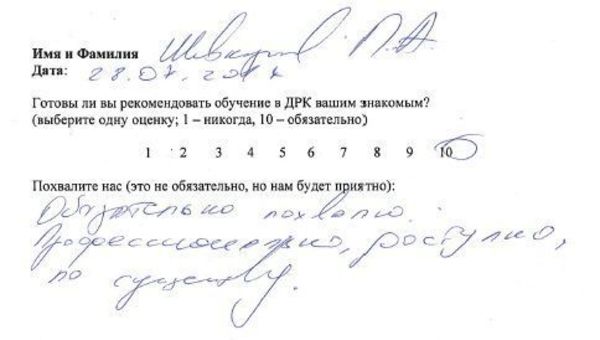 Имя и Фамилия П.А.
Дата: 28.07.2017
Готовы ли вы рекомендовать обучение в ДРК вашим знакомым?
(выберите одну оценку; 1 – никогда, 10 – обязательно)
1 2 3 4 5 6 7 8 9 10
Похвалите нас (это не обязательно, но нам будет приятно):
Обязательно похвалю.
Профессионально, доступно,
по существу.